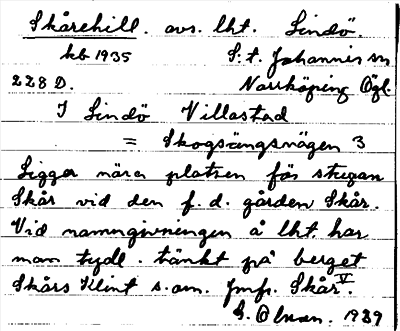 Skårehill. avs. lht. Lindö.
kb 1935 S:t Johannis sn
228 D. Norrköping Ögl.
I Lindö Villastad
= Skogsängsvägen 3
Ligger nära platsen för stugan
Skår vid den f.d. gården Skår.
Vid namngivningen å lht. har
man tydl. tänkt på berget
Skårs Klint s.om. Jmfr. Skår V.
G. Olson. 1939